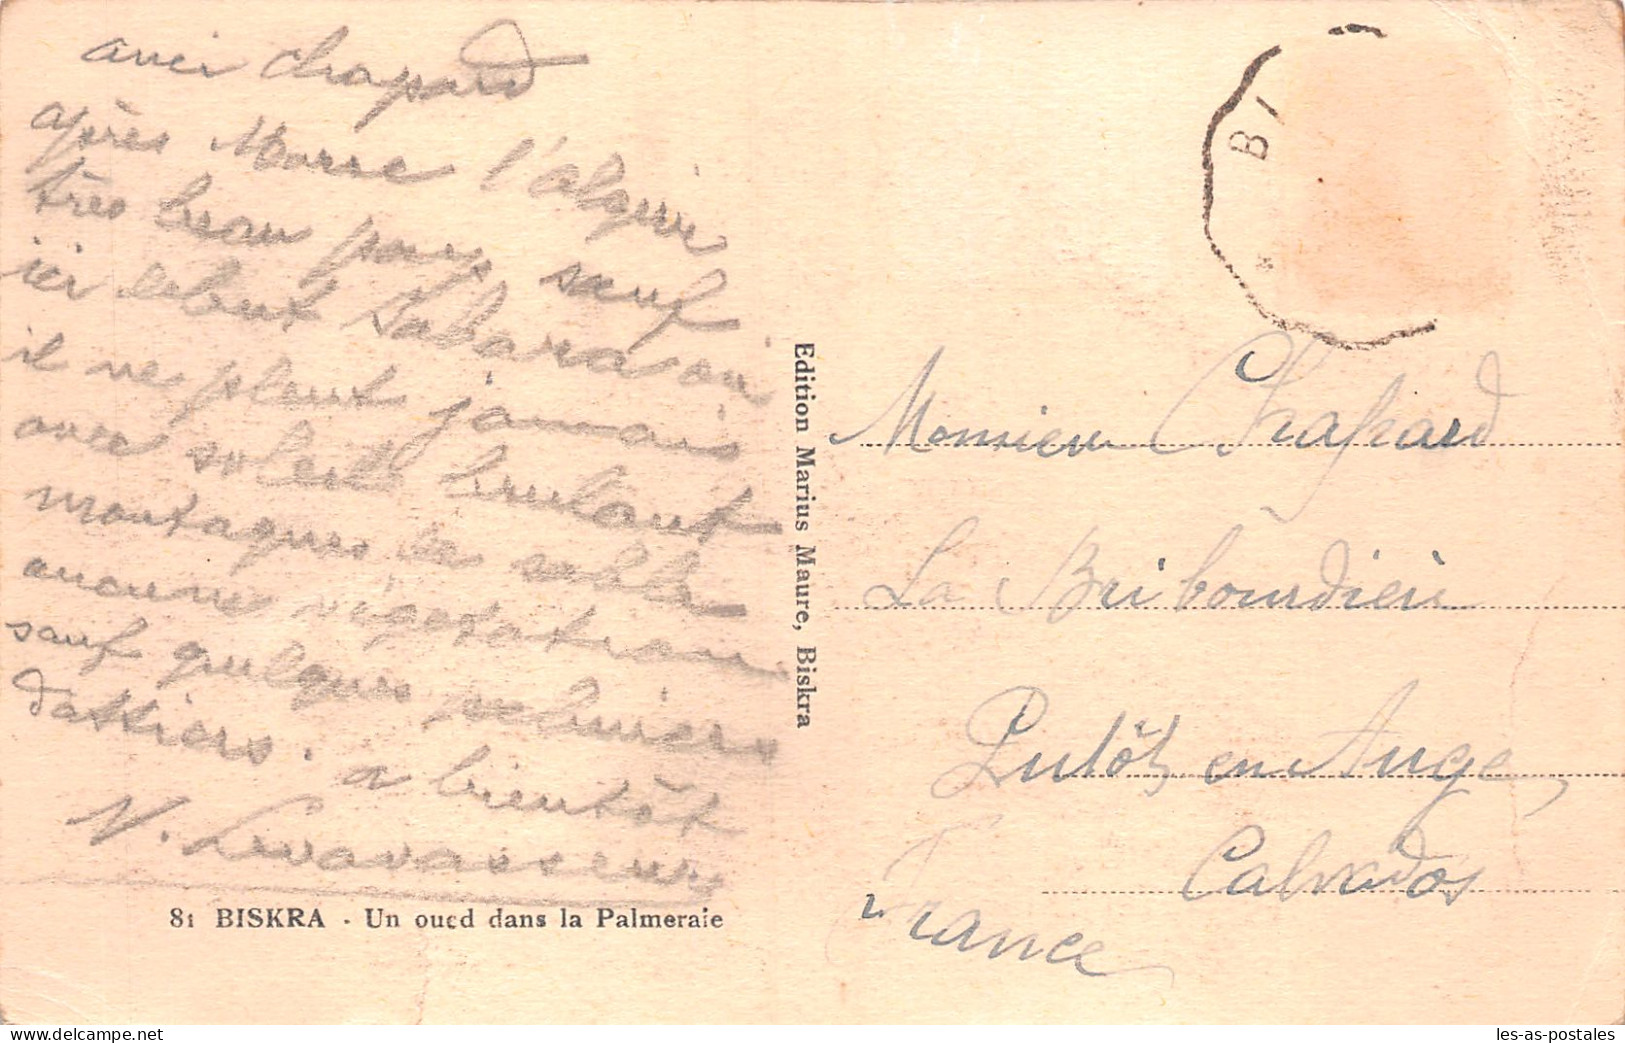 ami Chapard
après Maroc l'algerie
très beau pays sauf
ici debut Sahara où
il ne pleut jamais
avec soleil brulant
montagnes de sable
aucune végétation
sauf quelques palmiers
dattiers. a bientôt
V. Levavasseur
81 BISKRA - Un oued dans la Palmeraie
Edition Marius Maure, Biskra
BI
Monsieur Chapard
La Bribourdière
Putôt en Auge,
Calvados
France
les-as-postales